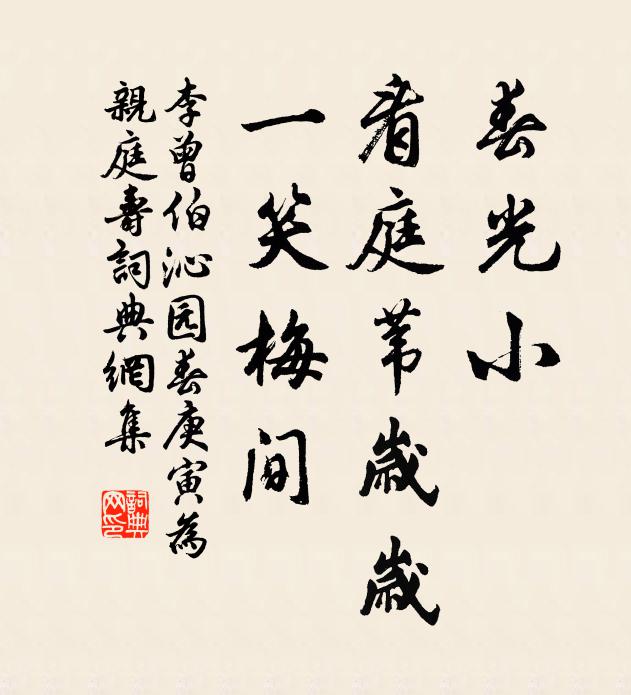 春光小
看庭苇歲歲
一笑梅间
李曾伯沁园春庚寅為
親庭壽詞典網集
詞典
网印